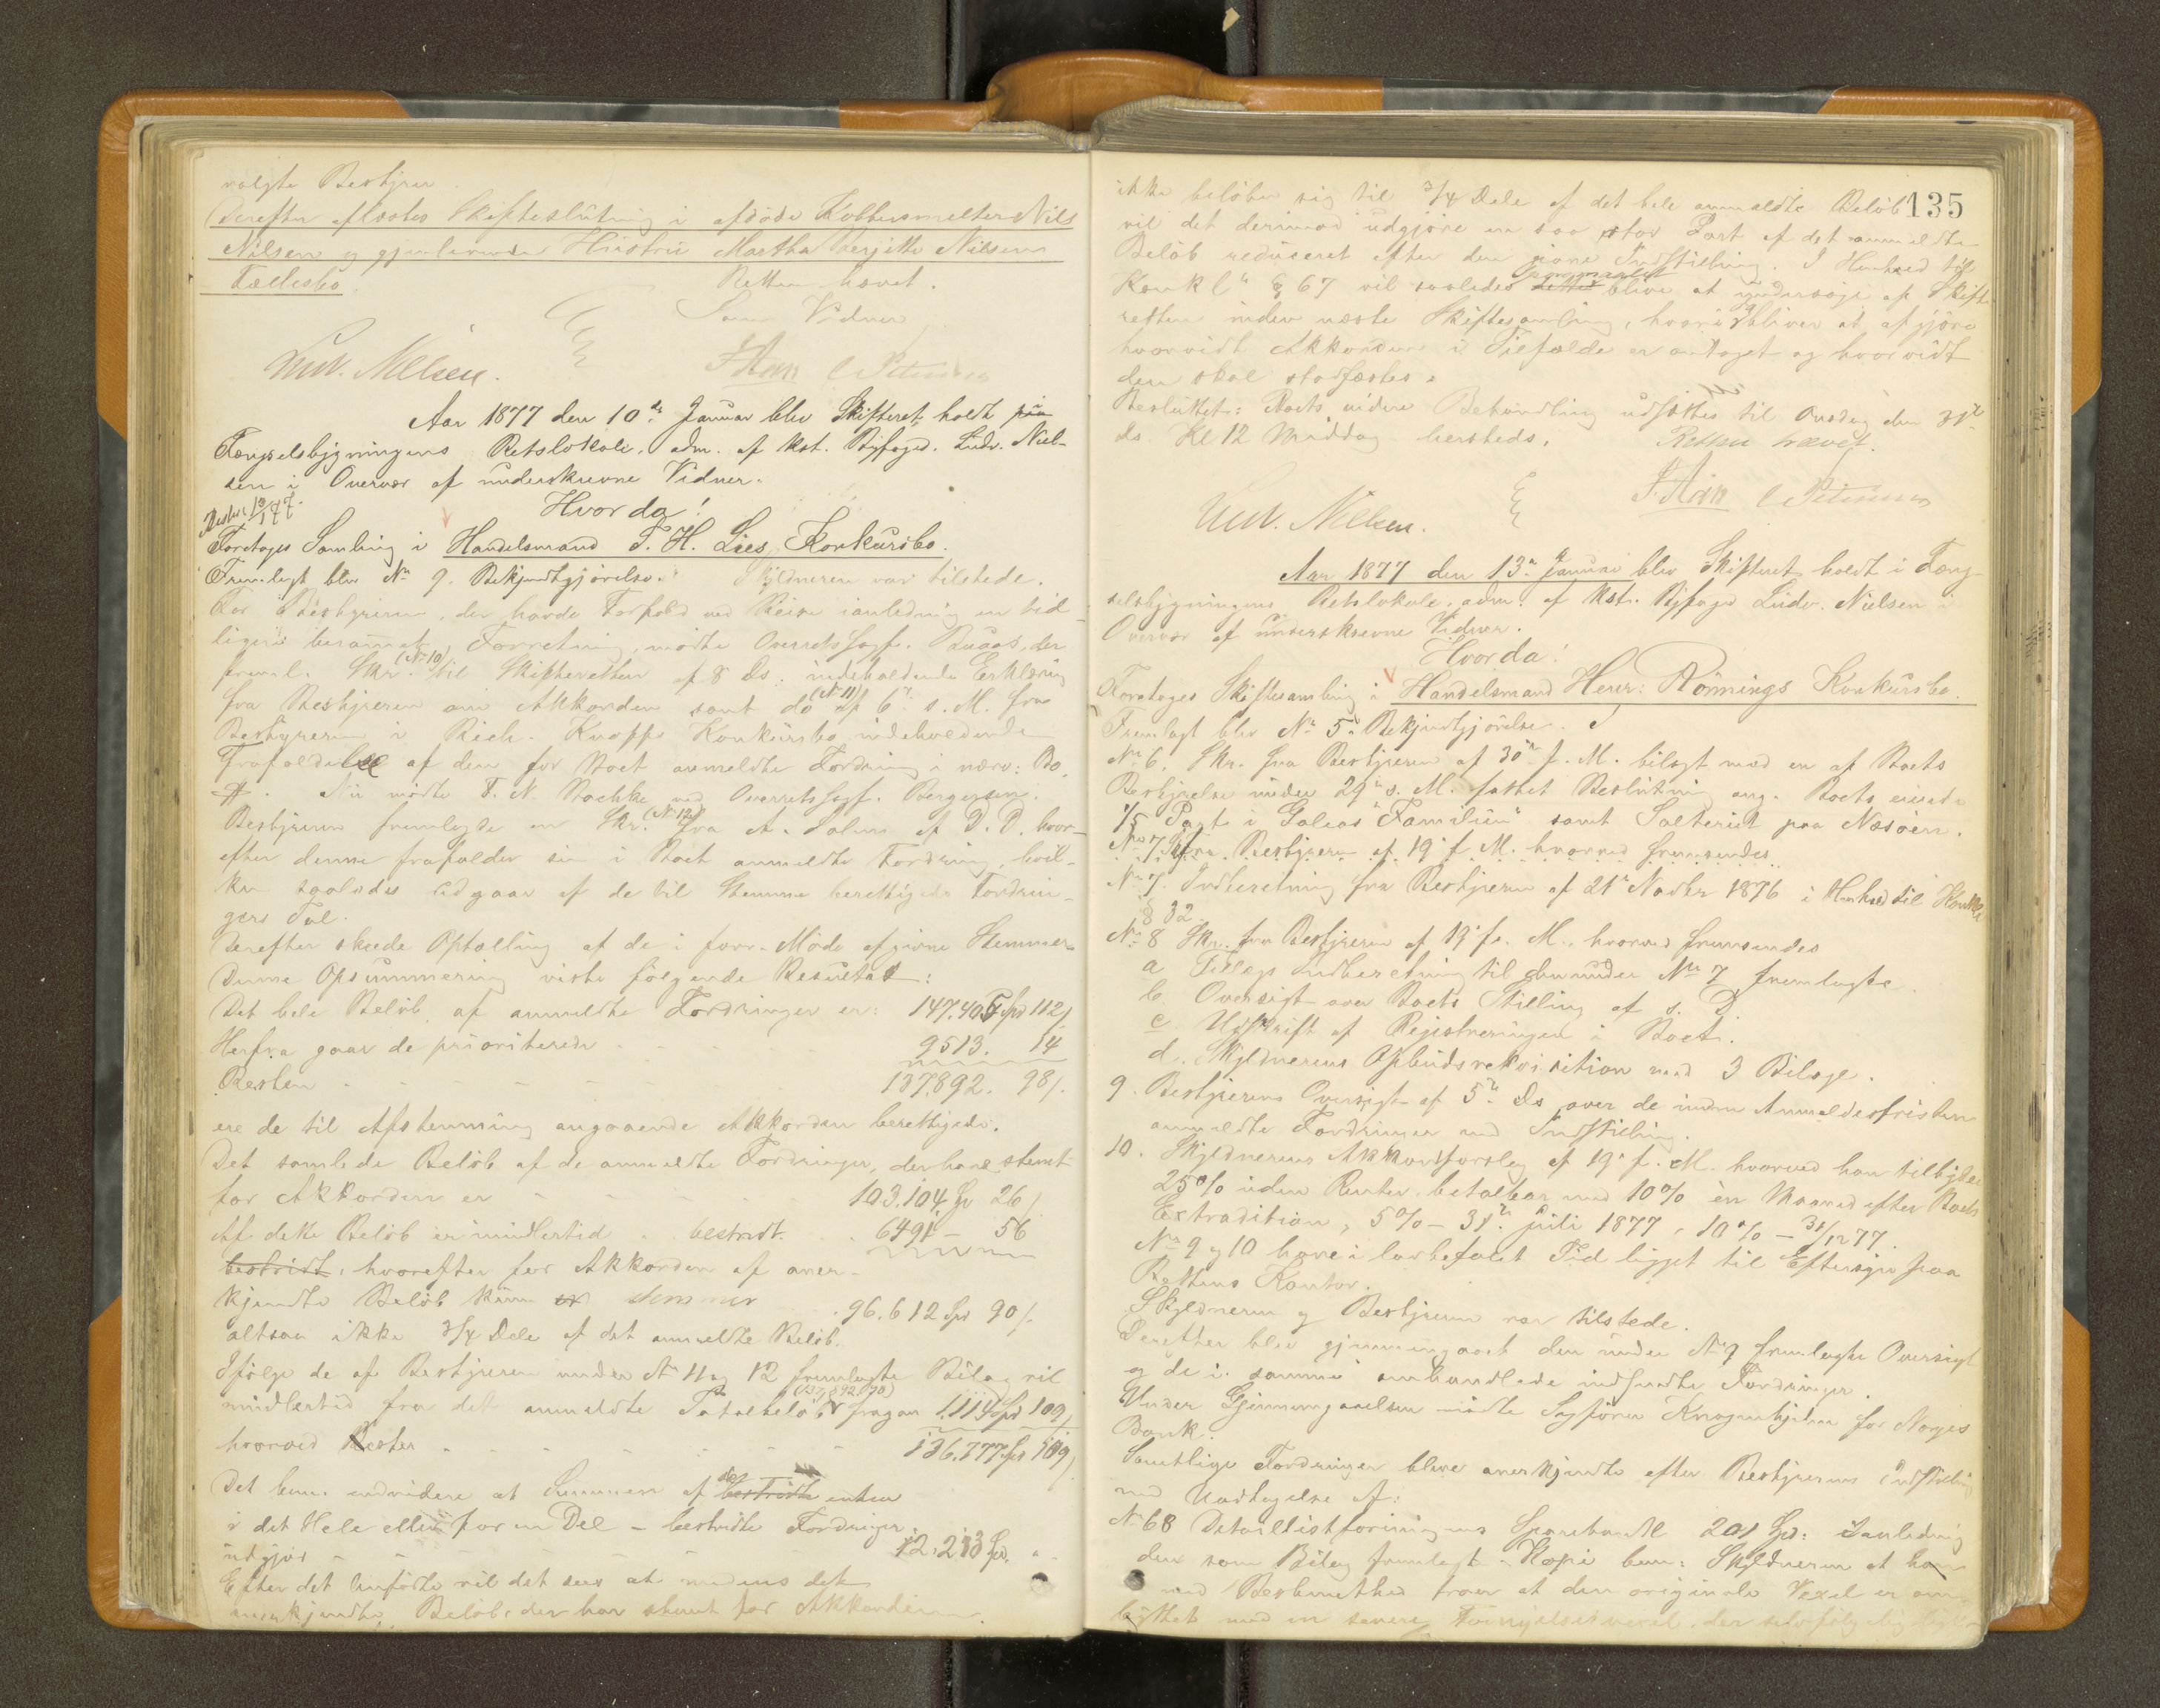 valgte Bestyrer.
Derefter afløstes Skifteslutning i afdøde Kobbersmelter Nils
Nilsen og gjenlevende Hustru Martha Berjitte Nilsens
Fællesbo.
Retten hævet.
Som Vidner
Ludv. Nielsen.
Aar 1877 den 10de Januar blev Skifteret holdt paa
Fængselsbygningens Retslokale, adm. af kst. Byfoged Ludv. Niel-
sen i Overvær af underskrevne Vidner.
Hvor da!
Foretoges Samling i Handelsmand T. H. Lies Konkursbo.
Fremlagt blev No 9. Bekjendtgjørelse. Skyldneren var tilstede.
For Bestyreren, der havde Forfald ved Reise i anledning en tid-
ligere berammet Forretning, mødte Overretssagf. Buaas, der
freml. Skr. (No 10) til Skifteretten af 8 ds. indeholdende Erklæring
fra Bestyreren om Akkorden samt do (No 11) af 6te s. M. fra
Bestyreren i Rich. Knopps Konkursbo indeholdende
Frafaldelse af den for Boet anmeldte Fordring i nærv: Bo.
Nu mødte F. N. Stochke ved Overretssagf. Bergersen.
Bestyreren fremlagde en Skr. (No 12) fra A. Solem af D. D. hvor-
efter denne frafalder sin i Boet anmeldte Fordring, hvil-
ken saaledes udgaar af de til Stemme berettigede Fordrin-
gers Tal.
Derefter skede Optælling af de i forr. Møde afgivne Stemmer.
Denne Opsummering viste følgende Resultat:
Det hele Beløb af anmeldte Fordringer er: 147.406 Spd 112/
Herfra gaar de prioriterede - - - 9513. 14
Resten - - - - - - 137,892. 98/.
ere de til Afstemning angaaende Akkorden berettigede.
Det samlede Beløb af de anmeldte Fordringer, der have stemt
for Akkorden er - - - - 103.104 Sp 26/.
Af dette Beløb er imidlertid bestridt. 6491 - 56
bestridt, hvorefter for Akkorden af aner-
kjendte Beløb kun er stemmer 96.612 Sp 90/.
altsaa ikke 3/4 Dele af det anmeldte Beløb.
Ifølge de af Bestyreren under No 11 og 12 fremlagte Bilag vil
imidlertid fra det anmeldte Totalbeløb (137,892.98) fragaa 1.114 Spd 109/
hvorved Rester - - - - - 136.777 Sp 109/
Det bem. endvidere at Summen af de bestridte enten
i det Hele eller for en Del - bestridte Fordringer
udgjør - - - - - 12.213 Spd. "
Efter det Anførte vil det sees at medens det
anerkjendte Beløb, der har stemt for Akkorden
135
ikke beløber sig til 3/4 Dele af det hele anmeldte Beløb
vil det derimod udgjøre en saa stor Part af det anmeldte
Beløb reduceret efter den givne Indstilling. I Henhold til
Konkl" § 67 vil saaledes Spørgsmaalet dette blive at undersøge af Skifte-
retten inden næste Skiftesamling, hvori bliver at afgjøre
hvorvidt Akkorden i Tilfælde er antaget og hvorvidt
den skal stadfæstes.
Besluttet: Boets videre Behandling udsættes til Onsdag den 31te
ds. Kl 12 Middag hersteds.
Retten hævet.
Ludv. Nielsen.
Aar 1877 den 13de Januar blev Skifteret holdt i Fæng-
selsbygningens Retslokale, adm. af kst. Byfoged Ludv. Nielsen i
Overvær af underskrevne Vidner.
Hvor da!
Foretoges Skiftesamling i Handelsmand Henr: Rønnings Konkursbo.
Fremlagt blev No 5. Bekjendtgjørelse.
No 6. Skr. fra Bestyreren af 30te f. M. bilagt med en af Boets
Bestyrelse under 29de s. M. fattet Beslutning ang. Boets eiende
1/5 Part i Galeas "Familien" samt Salteriet paa Næsøen.
No 7 Skr fra Bestyreren af 19de f. M. hvorved fremsendes
No 7. Indberetning fra Bestyreren af 21de Novbr 1876 i Henhold til Konkl
§ 32.
No 8 Skr. fra Bestyreren af 19de f. M., hvorved fremsendes
a Tillægs Indberetning til den under No 7 fremlagte.
b. Oversigt over Boets Stilling af s. D.
c Udskrift af Registreringen i Boet.
d. Skyldnerens Opbudsrekvisition med 3 Bilage.
9. Bestyrerens Oversigt af 5te ds over de inden Anmeldelsfristen
anmeldte Fordringer med Indstilling.
10. Skyldnerens Akkordforslag af 19de f. M. hvorved han tilbyder
25% uden Renter, betalbar med 10% en Maaned efter Boets
Extradition, 5% - 31te Juli 1877, 10% - 31/12 77.
No 9 og 10 have i lovbefalet Tid ligget til Eftersyn paa
Rettens Kontor.
Skyldneren og Bestyreren var tilstede.
Derefter blev gjennemgaaet den under No 9 fremlagte Oversigt
og de i samme omhandlede indsendte Fordringer.
Under Gjennemgaaelsen mødte Sagfører Knagenhjelm for Norges
Bank.
Samtlige Fordringer bleve anerkjendte efter Bestyrerens Indstilling
med Undtagelse af:
No 68 Detaillistforeningens Sparebank 201 Spd: I anledning
den som Bilag fremlagt Kopi bem: Skyldneren at han
med Bestemthed troer at den originale Vexel er om-
byttet med en senere Fornyelsesvexel, der selvfølgelig